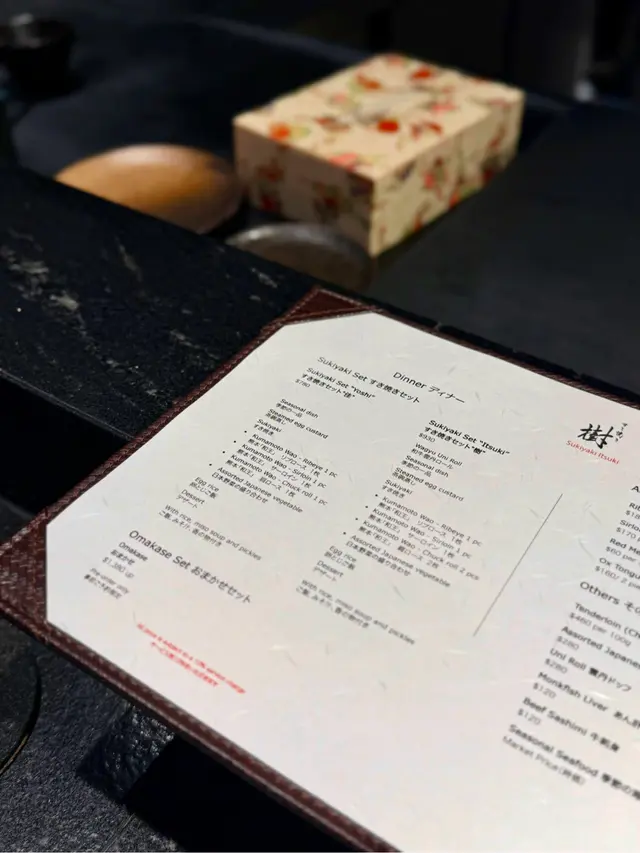 Dinner ディナー
Sukiyaki Set すき焼きセット
Sukiyaki Set "Yoshi"
すき焼きセット"佳"
$780
Seasonal dish
季節の一品
Steamed egg custard
茶碗蒸し
Sukiyaki
すき焼き
• Kumamoto Wao - Ribeye 1 pc
熊本「和王」 リブロース 1枚
• Kumamoto Wao - Sirloin 1 pc
熊本「和王」 サーロイン 1枚
• Kumamoto Wao - Chuck roll 1 pc
熊本「和王」 肩ロース 1枚
• Assorted Japanese vegetable
日本野菜の盛り合わせ
Egg rice
卵とじご飯
Dessert
デザート
With rice, miso soup and pickles
ご飯、みそ汁、香の物付き
Omakase Set おまかせセット
Omakase
おまかせ
$1,380 up
Pre-order only
事前ご予約限定
All price is subject to a 10% service charge
Sukiyaki Set "Itsuki"
すき焼きセット"樹"
$930
Wagyu Uni Roll
和牛雲丹ロール
Seasonal dish
季節の一品
Steamed egg custard
茶碗蒸し
Sukiyaki
すき焼き
• Kumamoto Wao - Ribeye 1 pc
熊本「和王」 リブロース 1枚
• Kumamoto Wao - Sirloin 1 pc
熊本「和王」 サーロイン 1枚
• Kumamoto Wao - Chuck roll 2 pcs
熊本「和王」 肩ロース 2枚
• Assorted Japanese vegetable
日本野菜の盛り合わせ
Egg rice
卵とじご飯
Dessert
デザート
With rice, miso soup and pickles
ご飯、みそ汁、香の物付き
すき焼き
樹
Sukiyaki Itsuki
Others
Tenderloin
$460 per 100g
Assorted Japanese
$280
Uni Roll 雲丹
$280
Monkfish Liver あん肝
$120
Beef Sashimi 牛刺身
$120
Seasonal Seafood 季節の
Market Price(時価)